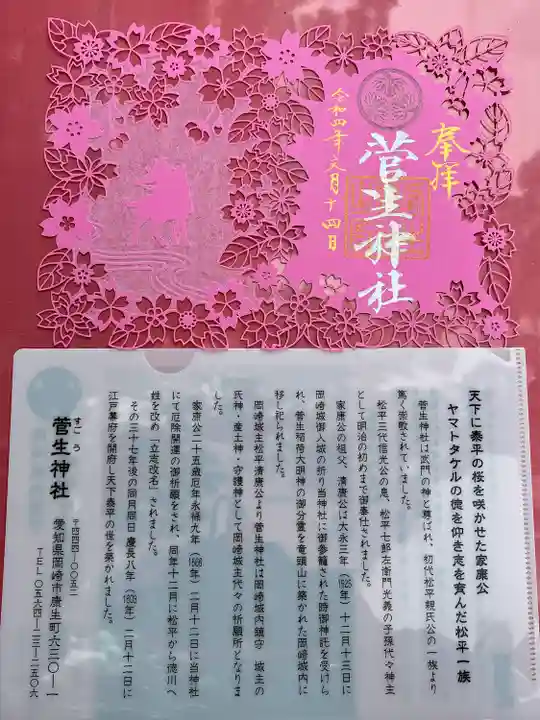 奉拝
菅生神社
令和四年六月十四日
天下に泰平の桜を咲かせた家康公
ヤマトタケルの徳を仰ぎ志を育んだ松平一族
菅生神社は武門の神と尊ばれ、初代松平親氏公の一族より
篤く崇敬されていました。
松平三代信光公の息、松平七郎左衛門光義の子孫代々神主
として明治の初めまで御奉仕されました。
家康公の祖父、清康公は大永三年（1525年）十二月十三日に
岡崎城御入城の折り当神社に御参籠された時御神託を受けら
れ、菅生稲荷大明神の御分霊を竜頭山に築かれた岡崎城内に
移し祀られました。
岡崎城主松平清康公より菅生神社は岡崎城内鎮守 城主の
氏神・産土神・守護神として岡崎城主代々の祈願所となりま
した。
家康公二十五歳厄年永禄九年（1566年）二月十二日に当神社
にて厄除開運の御祈願をされ、同年十二月に松平から徳川へ
姓を改め「立志改名」されました。
その三十七年後の同月同日 慶長八年（1603年）二月十二日に
江戸幕府を開府し天下泰平の世を築かれました。
すごう
菅生神社
〒四四四-〇〇五二
愛知県岡崎市康生町六三〇-一
ＴＥＬ〇五六四-二三-二五〇六